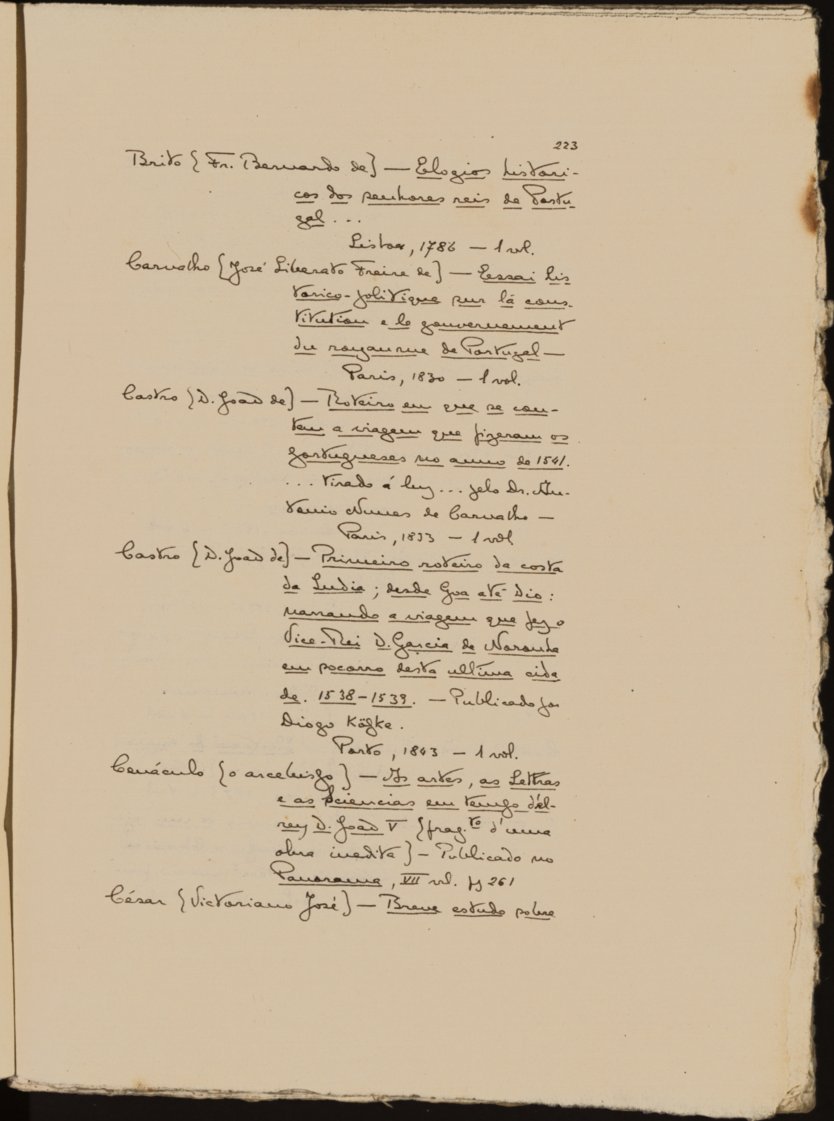 223
Brito {Fr. Bernardo de} — Elogios histori-
cos dos senhores reis de Portu-
gal ...
Lisboa, 1786 — 1 vol.
Carvalho {José Liberato Freire de} — Essai his
torico-politique sur la cons-
titution e le gouvernement
du royaume de Portugal —
Paris, 1830 — 1 vol.
Castro {D. João de} — Roteiro em que se con-
tem a viagem que fizeram os
portugueses no anno de 1541.
... tirado á luz ... pelo Dr. An-
tonio Nunes de Carvalho —
Paris, 1833 — 1 vol
Castro {D. João de} — Primeiro roteiro da costa
da India; desde Goa até Dio:
narrando a viagem que fez o
Vice-Rei D. Garcia de Noronha
em socorro desta ultima cida
de. 1538-1539. — Publicado por
Diogo Köpke.
Porto, 1843 — 1 vol.
Cenáculo {o arcebispo} — As artes, as Lettras
e as Sciencias em tempo d'el-
rey D. João V {frag.to d'uma
obra inedita} — Publicado no
Panorama, VII vol. pg 261
César {Victoriano José} — Breve estudo sobre